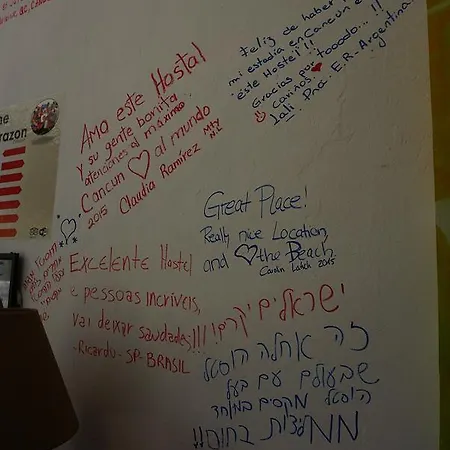 Amo este Hostal
y su gente bonita
atenciones al máximo
Cancun al mundo
2015 Claudia Ramírez Mty
N.L
Feliz de haber
mi estadia en Cancun e
este Hostel!!
Gracias por toooodo...!!
cariños
Lali Pna. E.R-Argentina
razon
Great Place!
Really nice Location
and the Beach
2015
Excelente Hostel
e pessoas incríveis,
vai deixar saudades!!!
-Ricardo- SP-BRASIL
ישראלים יקרים!
זה אחלה הוסטל
שבעולם עם בעל
הוסטל מקסים במיוחד
ממליצות בחום!!